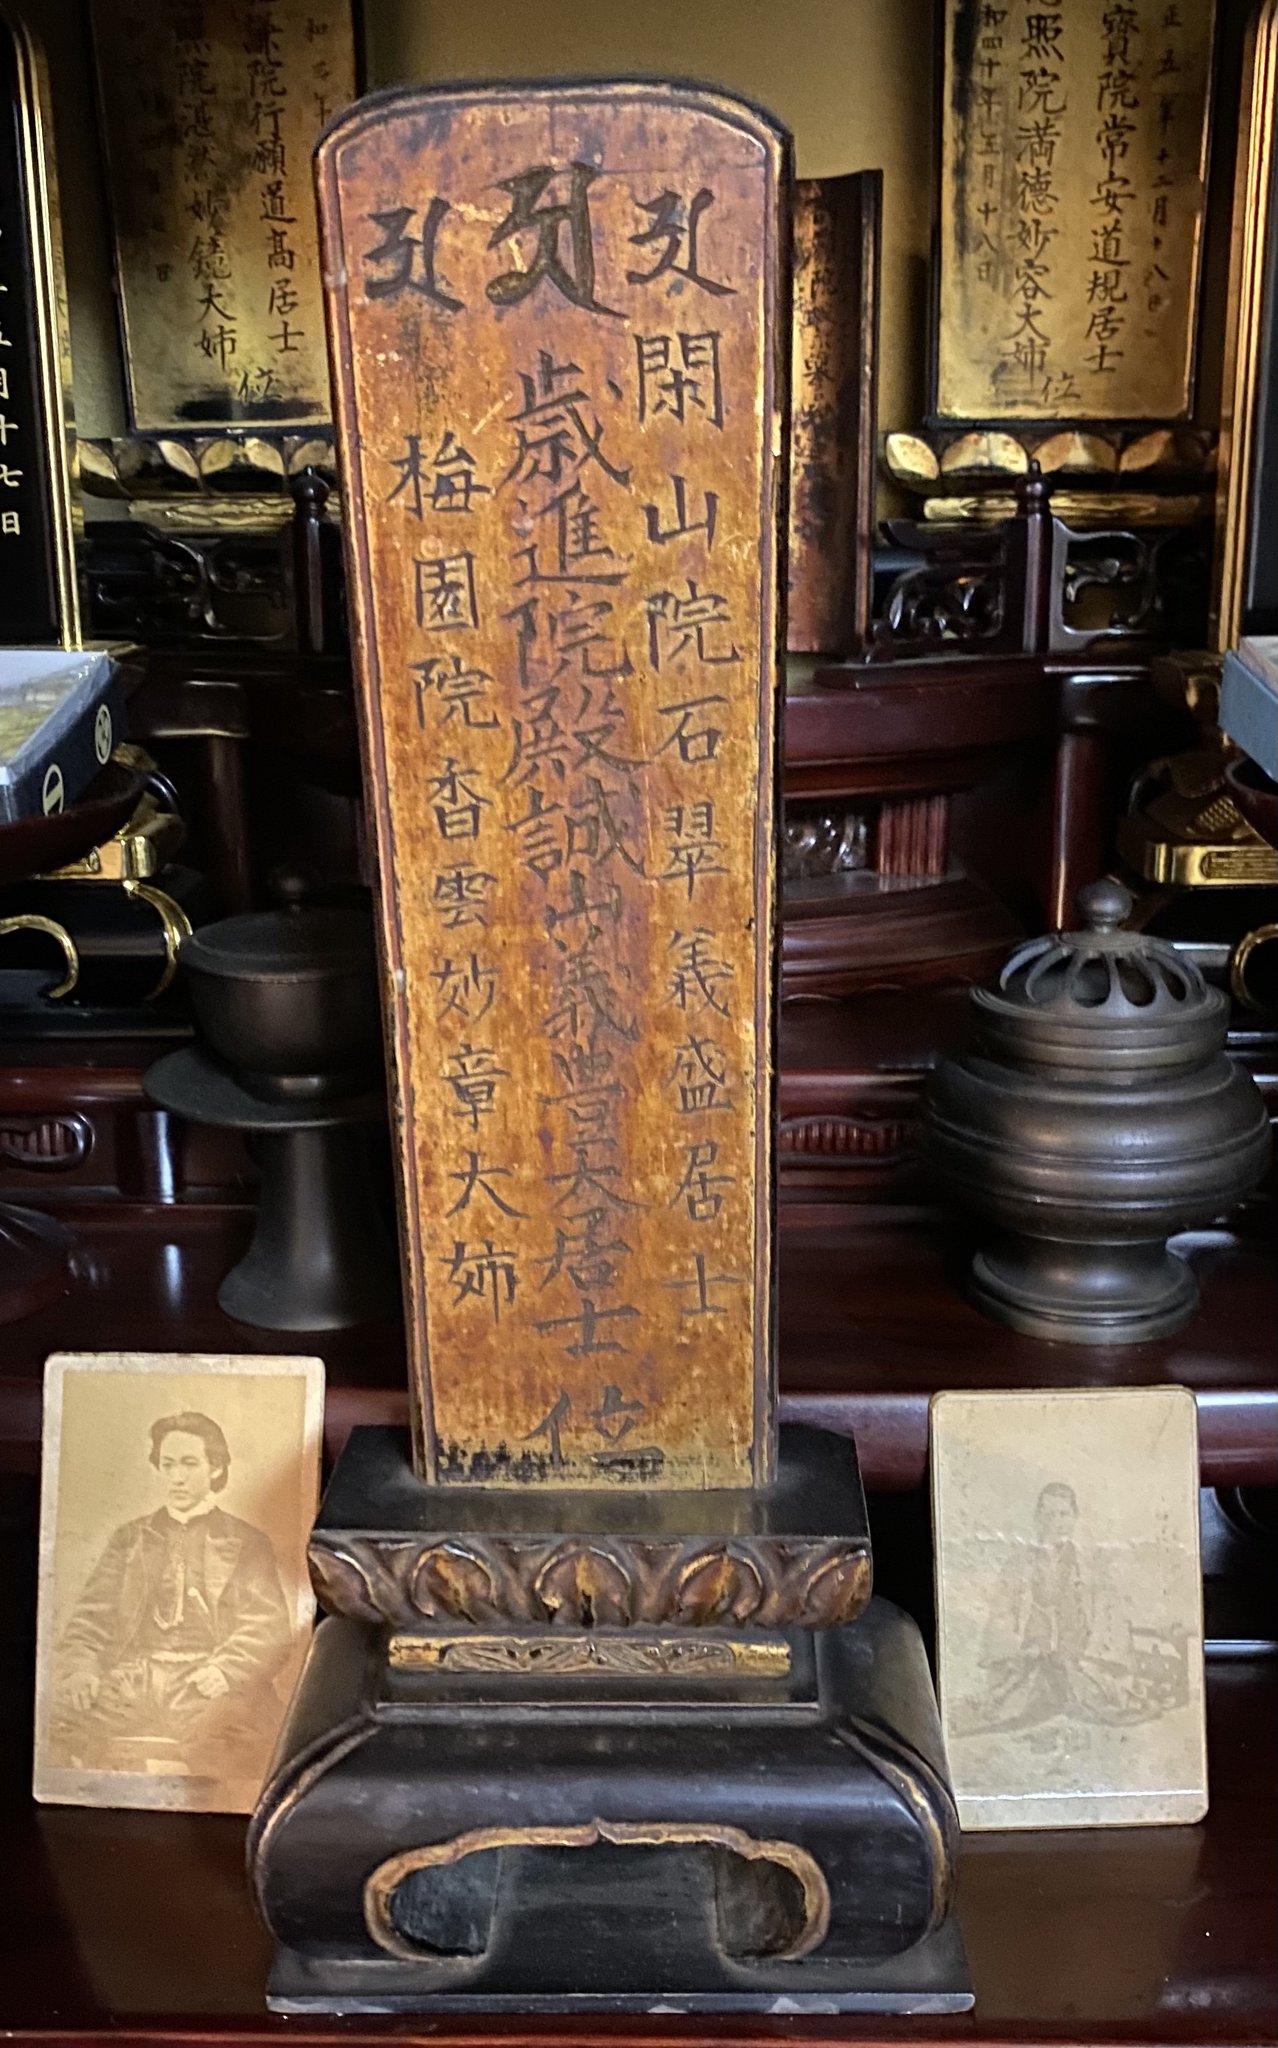 𑖀
𑖀
𑖀
閑山院石翠義盛居士
歳進院殿誠山義豊大居士位
梅園院香雲妙章大姉
正五年十二月十八日
寳院常安道規居士
照院満徳妙容大姉
位
和四十年五月十八日
和三年
謙院行願道髙居士
照院湛然妙鏡大姉
位
日
五月十七日